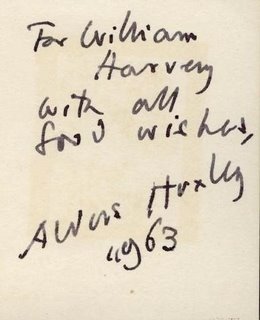 For William
Harvey
with all
good wishes,
Aldous Huxley
1963